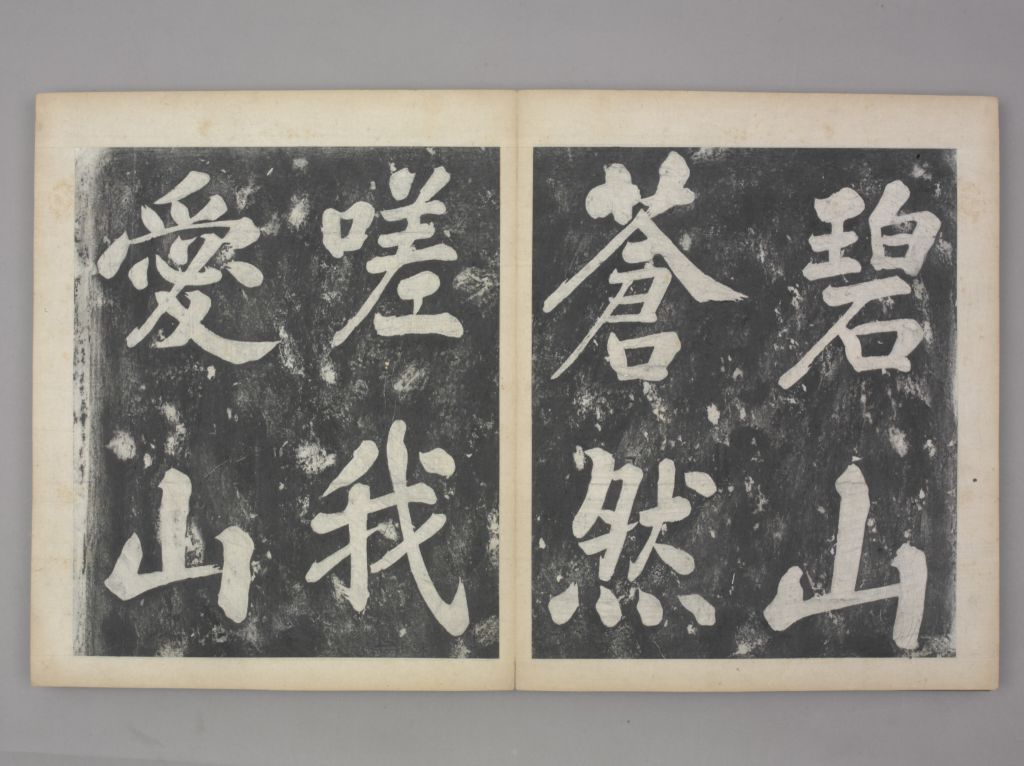 碧山
蒼然
嗟我
愛山